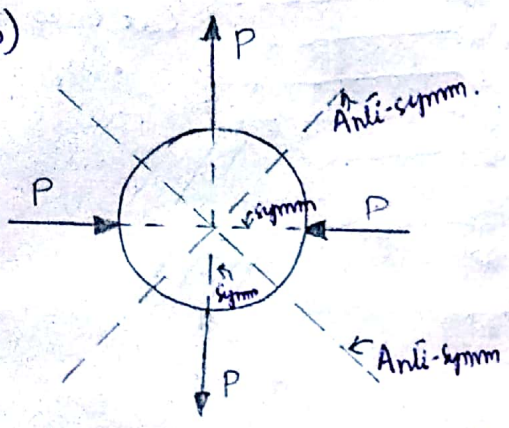 b)
P
Anti-symm.
P
symm
P
symm
Anti-symm
P